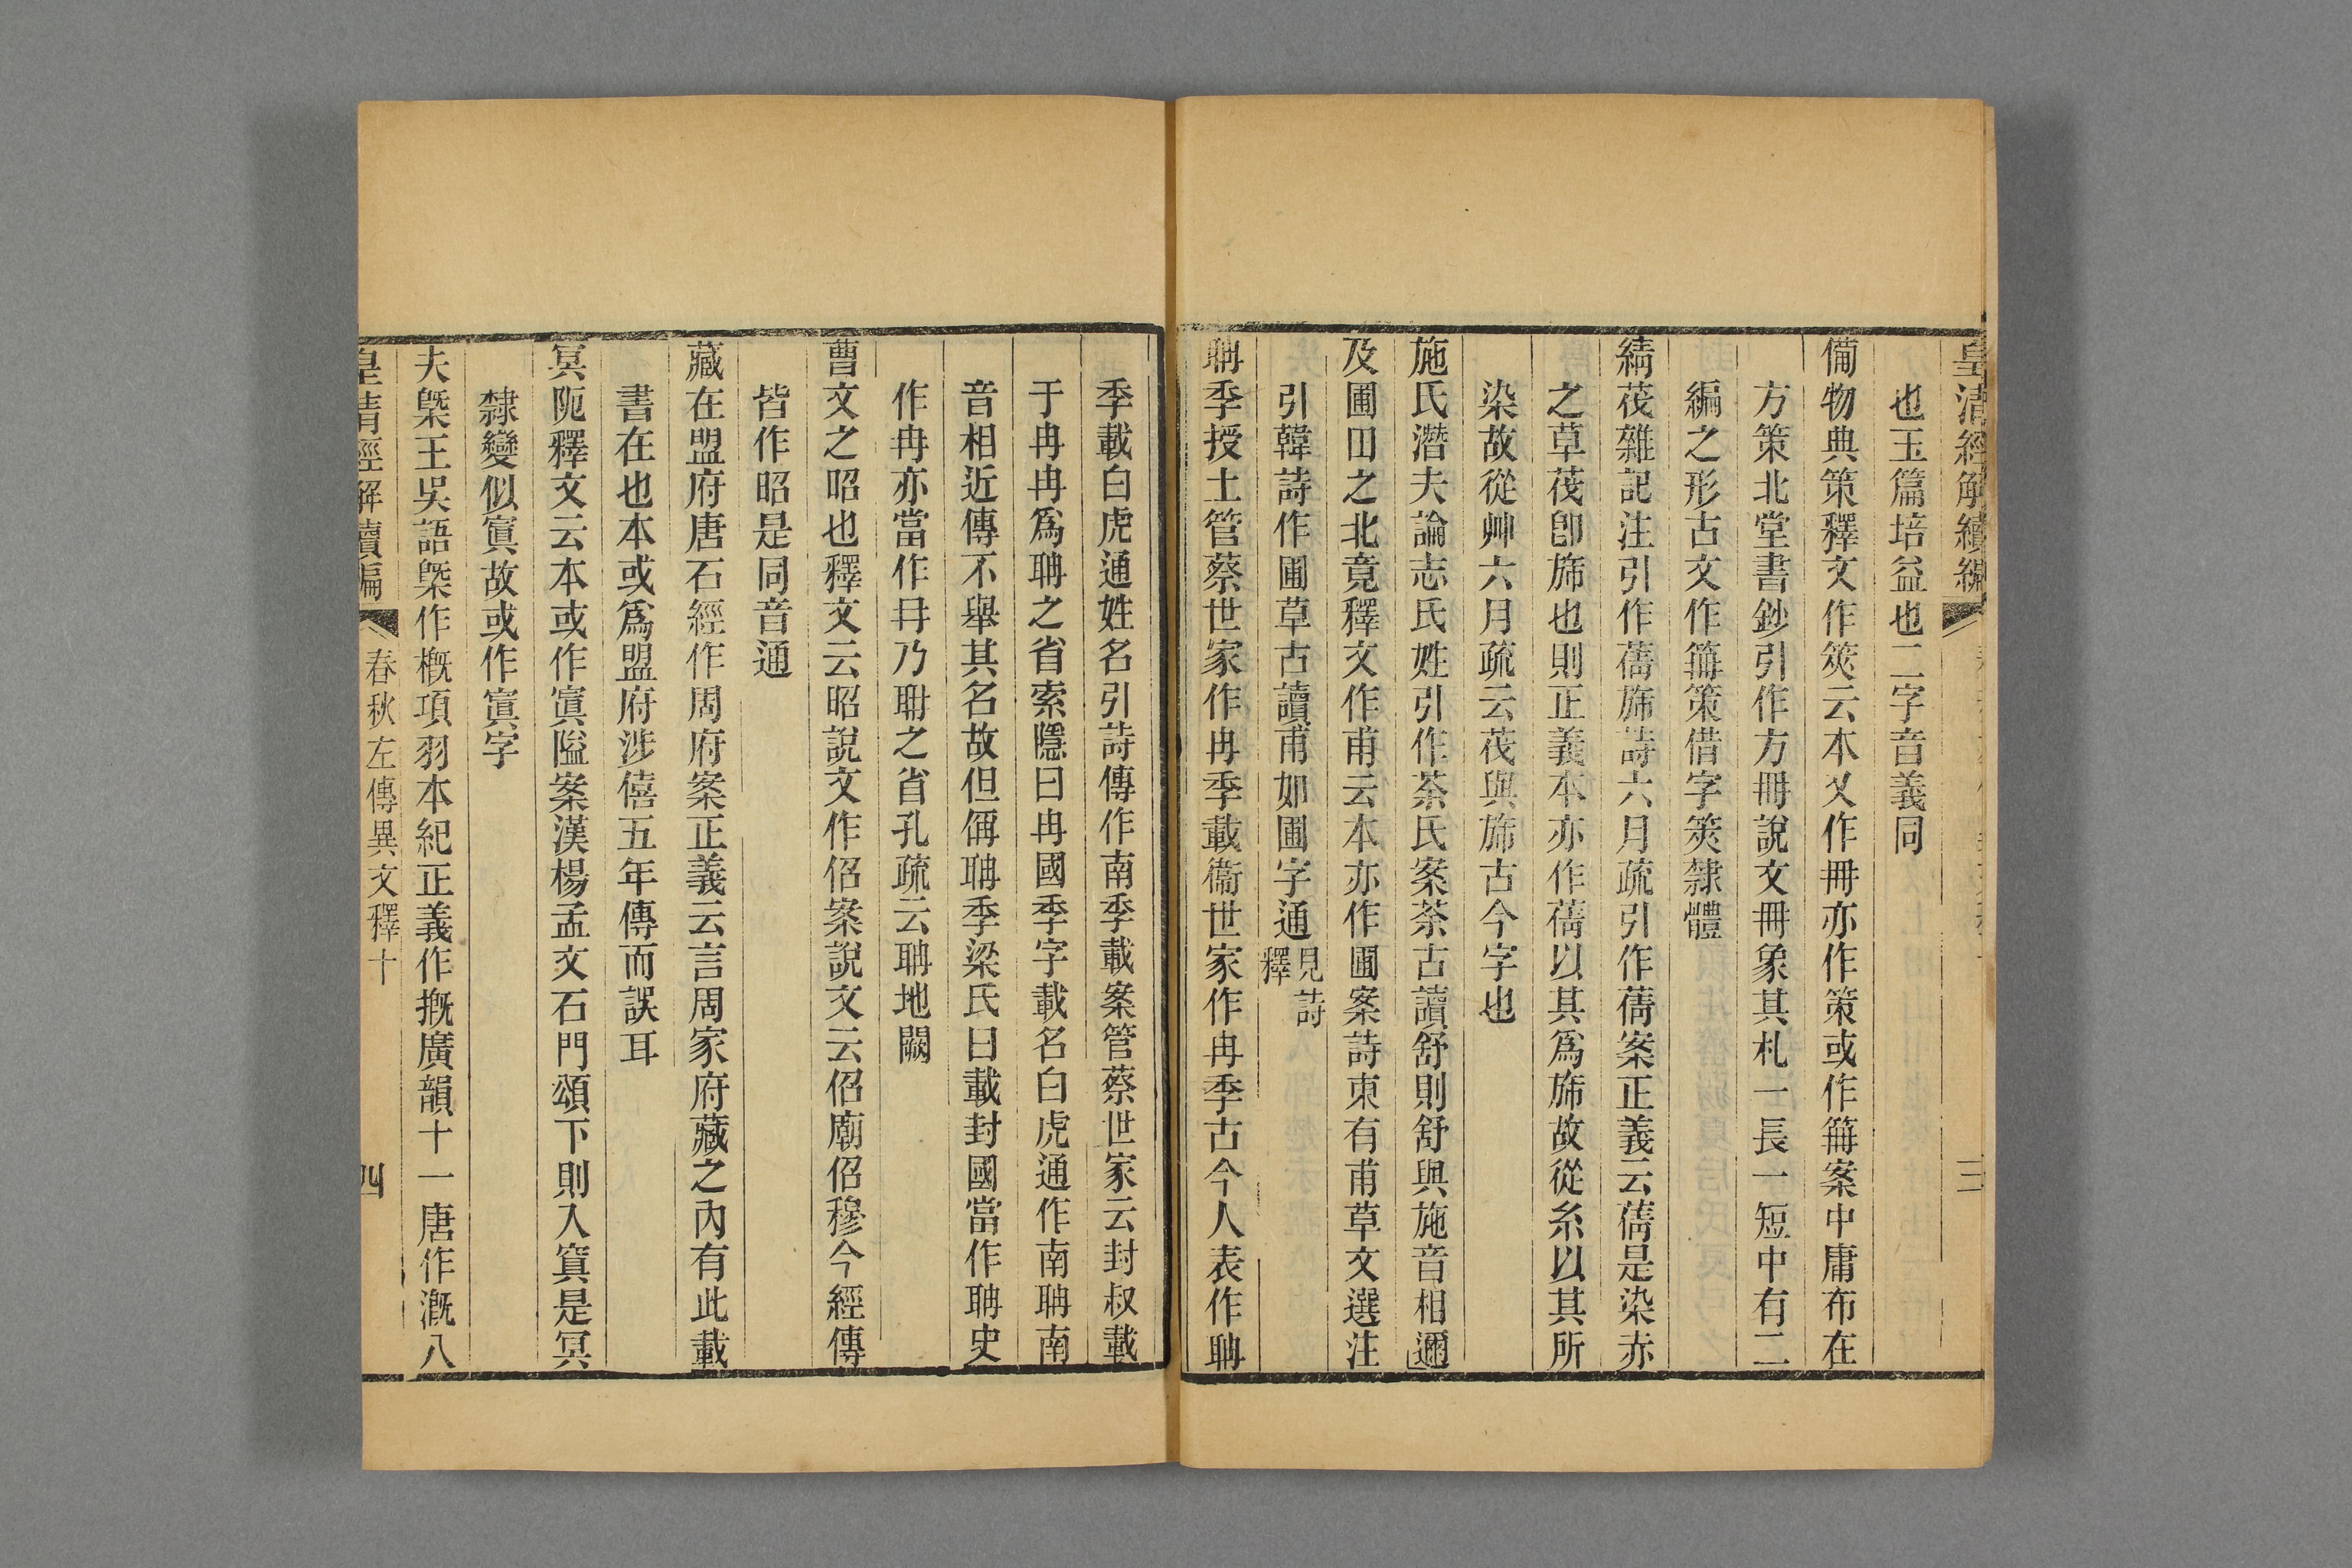 皇清經解續編
三
也玉篇培益也二字音義同
備物典策釋文作筴云本又作冊亦作策或作𥬰案中庸布在
方策北堂書鈔引作方冊說文冊象其札一長一短中有二
編之形古文作𥬰策借字筴隸體
綪茷雜記注引作蒨旆詩六月疏引作蒨案正義云蒨是染赤
之草茷卽旆也則正義本亦作蒨以其爲旆故從糸以其所
染故從艸六月疏云茷與旆古今字也
施氏潛夫論志氏姓引作荼氏案荼古讀舒則舒與施音相邇
及圃田之北竟釋文作甫云本亦作圃案詩東有甫草文選注
引韓詩作圃草古讀甫如圃字通見詩釋
聃季授土管蔡世家作冉季載衞世家作冉季古今人表作聃
季載白虎通姓名引詩傳作南季載案管蔡世家云封叔載
于冉冉爲聃之省索隱曰冉國季字載名白虎通作南聃南
音相近傳不舉其名故但偁聃季梁氏曰載封國當作聃史
作冉亦當作冄乃耼之省孔疏云聃地闕
曹文之昭也釋文云昭說文作佋案說文云佋廟佋穆今經傳
皆作昭是同音通
藏在盟府唐石經作周府案正義云言周家府藏之內有此載
書在也本或爲盟府涉僖五年傳而誤耳
冥阨釋文云本或作寘隘案漢楊孟文石門頌下則入寘是冥
隸變似寘故或作寘字
夫槩王吳語槩作概項羽本紀正義作摡廣韻十一唐作溉八
皇清經解續編
春秋左傳異文釋十
四